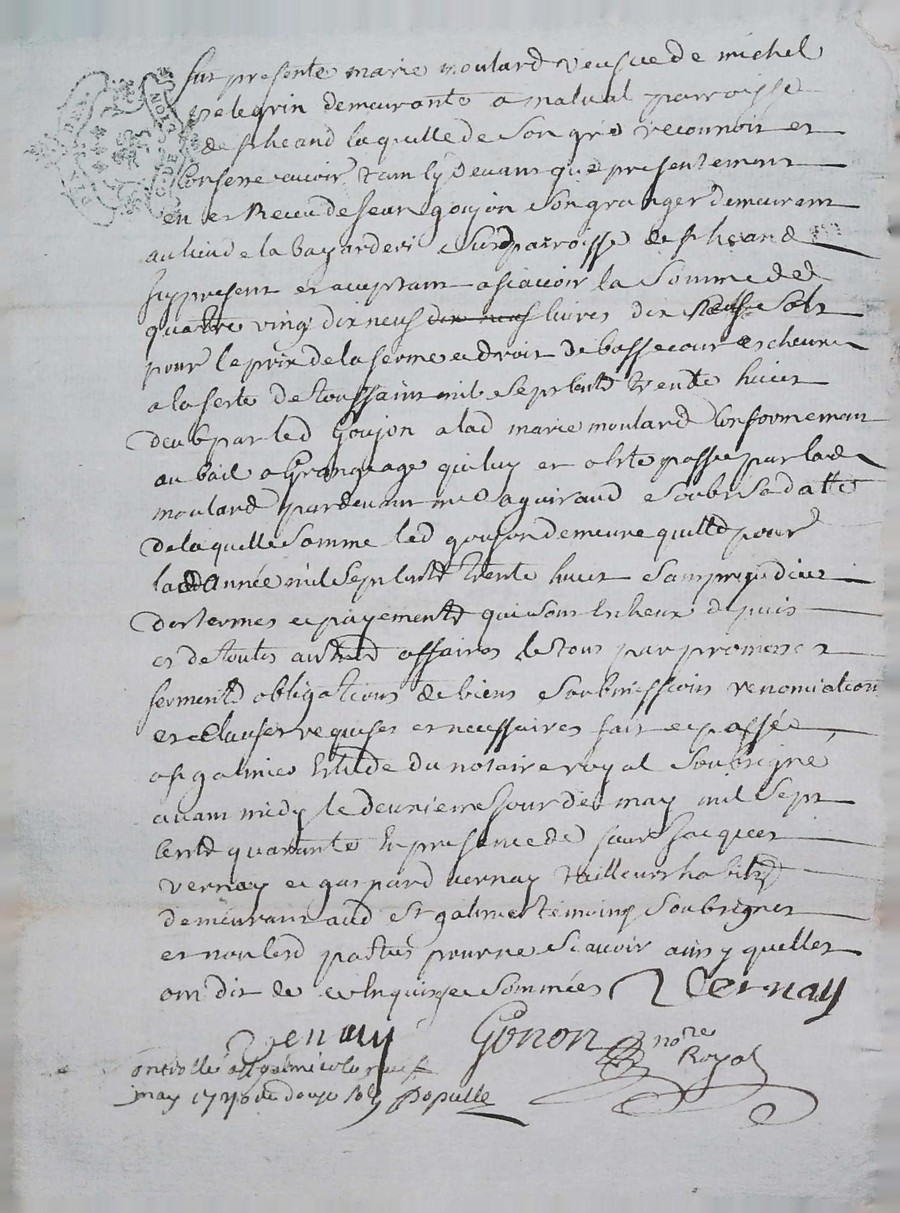 fut presente marie moulard veufve de michel
pelegrin demeurante a malval parroisse
de st heand laquelle de son gré reconnoit et
confesse avoir tam cy devant que presentement
eu et Receu de Jean goujon son granger demeurant
au lieu de la bayarderi susd parroisse de st heand
icy present et aceptant asçavoir la somme de
quatre ving dix neuf dix neuf livres dix sols
pour le prix de la ferme et droit de basse cour escheue
a la feste de toussaint mil sept cent trente huict
deub par led Goujon a lad marie moulard conformement
au bail a Grangeage qui luy et esté passé par lad
moulard pardevant me aguiraud soubs sa datte
de laquelle somme led goujon demeure quitte pour
lad année mil sept cent trente huict sans prejudice
des termes et payement qui sont Escheux depuis
et de toutes autres affaires le tous par promesses
serment obligations de biens soubmissions renonciation
et clauses requises et necessaires fait et passé
a st galmier Estude du notaire royal soubsigné
avant midy le deuxieme jour de may mil sept
cent quarante En presence de sieur Jacques
vernay et gaspard vernay tailleurs habits
demeurant aud st galmier témoins soubsignes
et non lesd parties pour ne sçavoir ainsy quelles
ont dit de ce Enquises et sommées Vernay
Vernay Gonon nore
Royal
ontrollé a st galmier le neuf
may 1740 douze sols Populle